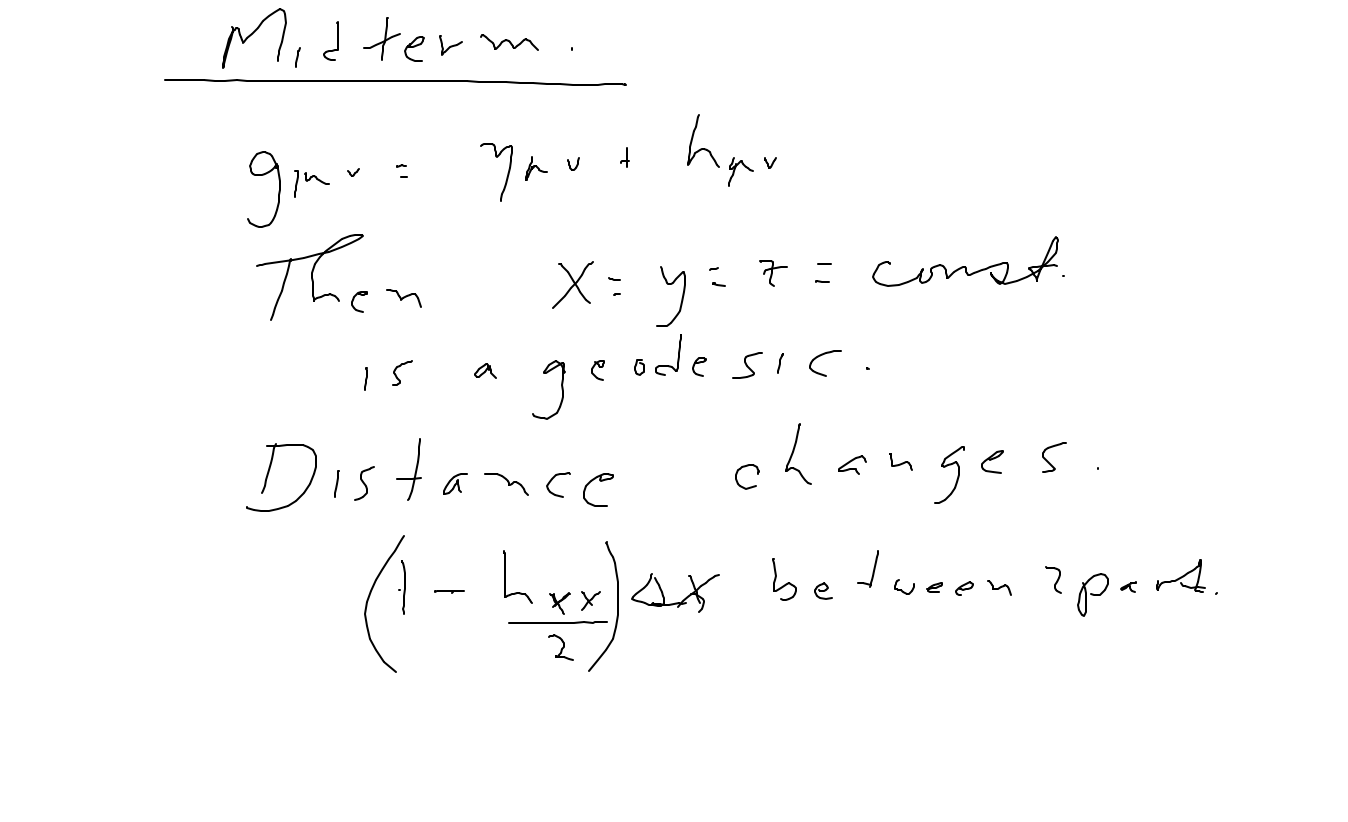 Midterm.
g_{μν} = η_{μν} + h_{μν}
Then x = y = z = const.
is a geodesic.
Distance changes.
(1 - h_{xx}/2) Δx between 2 part.